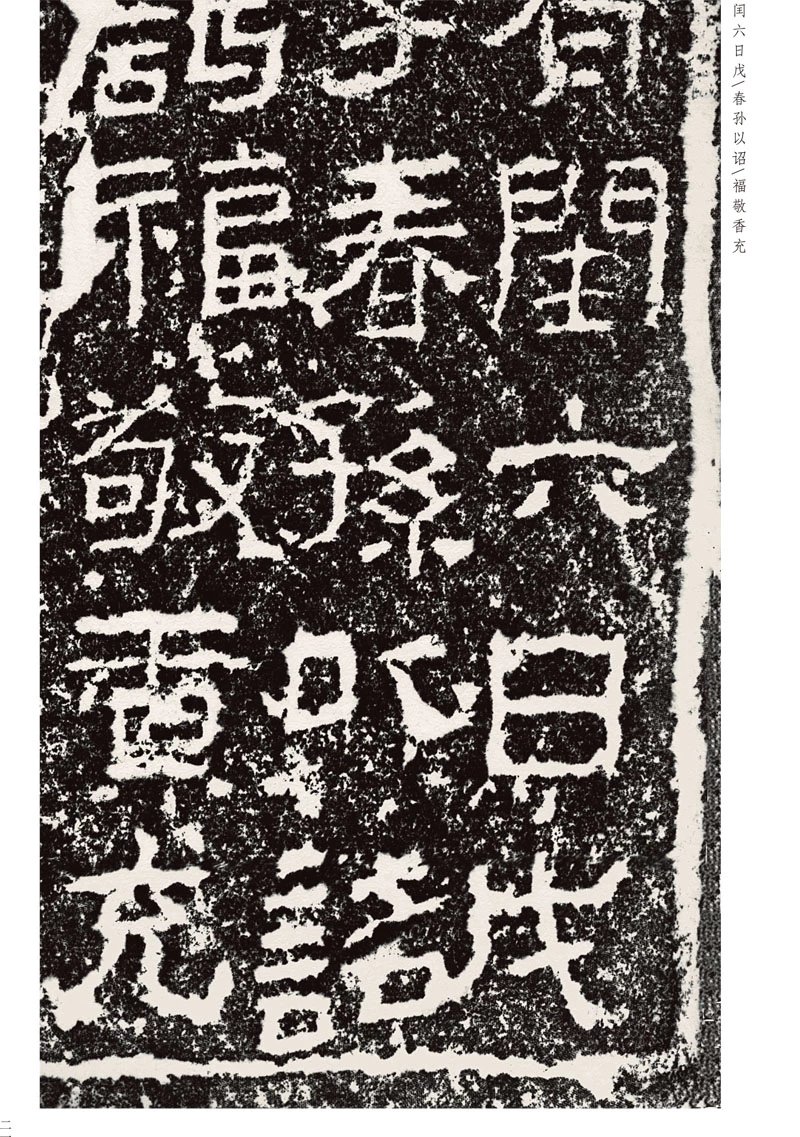 闰六日戊\春孙以诏\福敬香充
閏六日戊
春孫以詔
福敬香充
二一